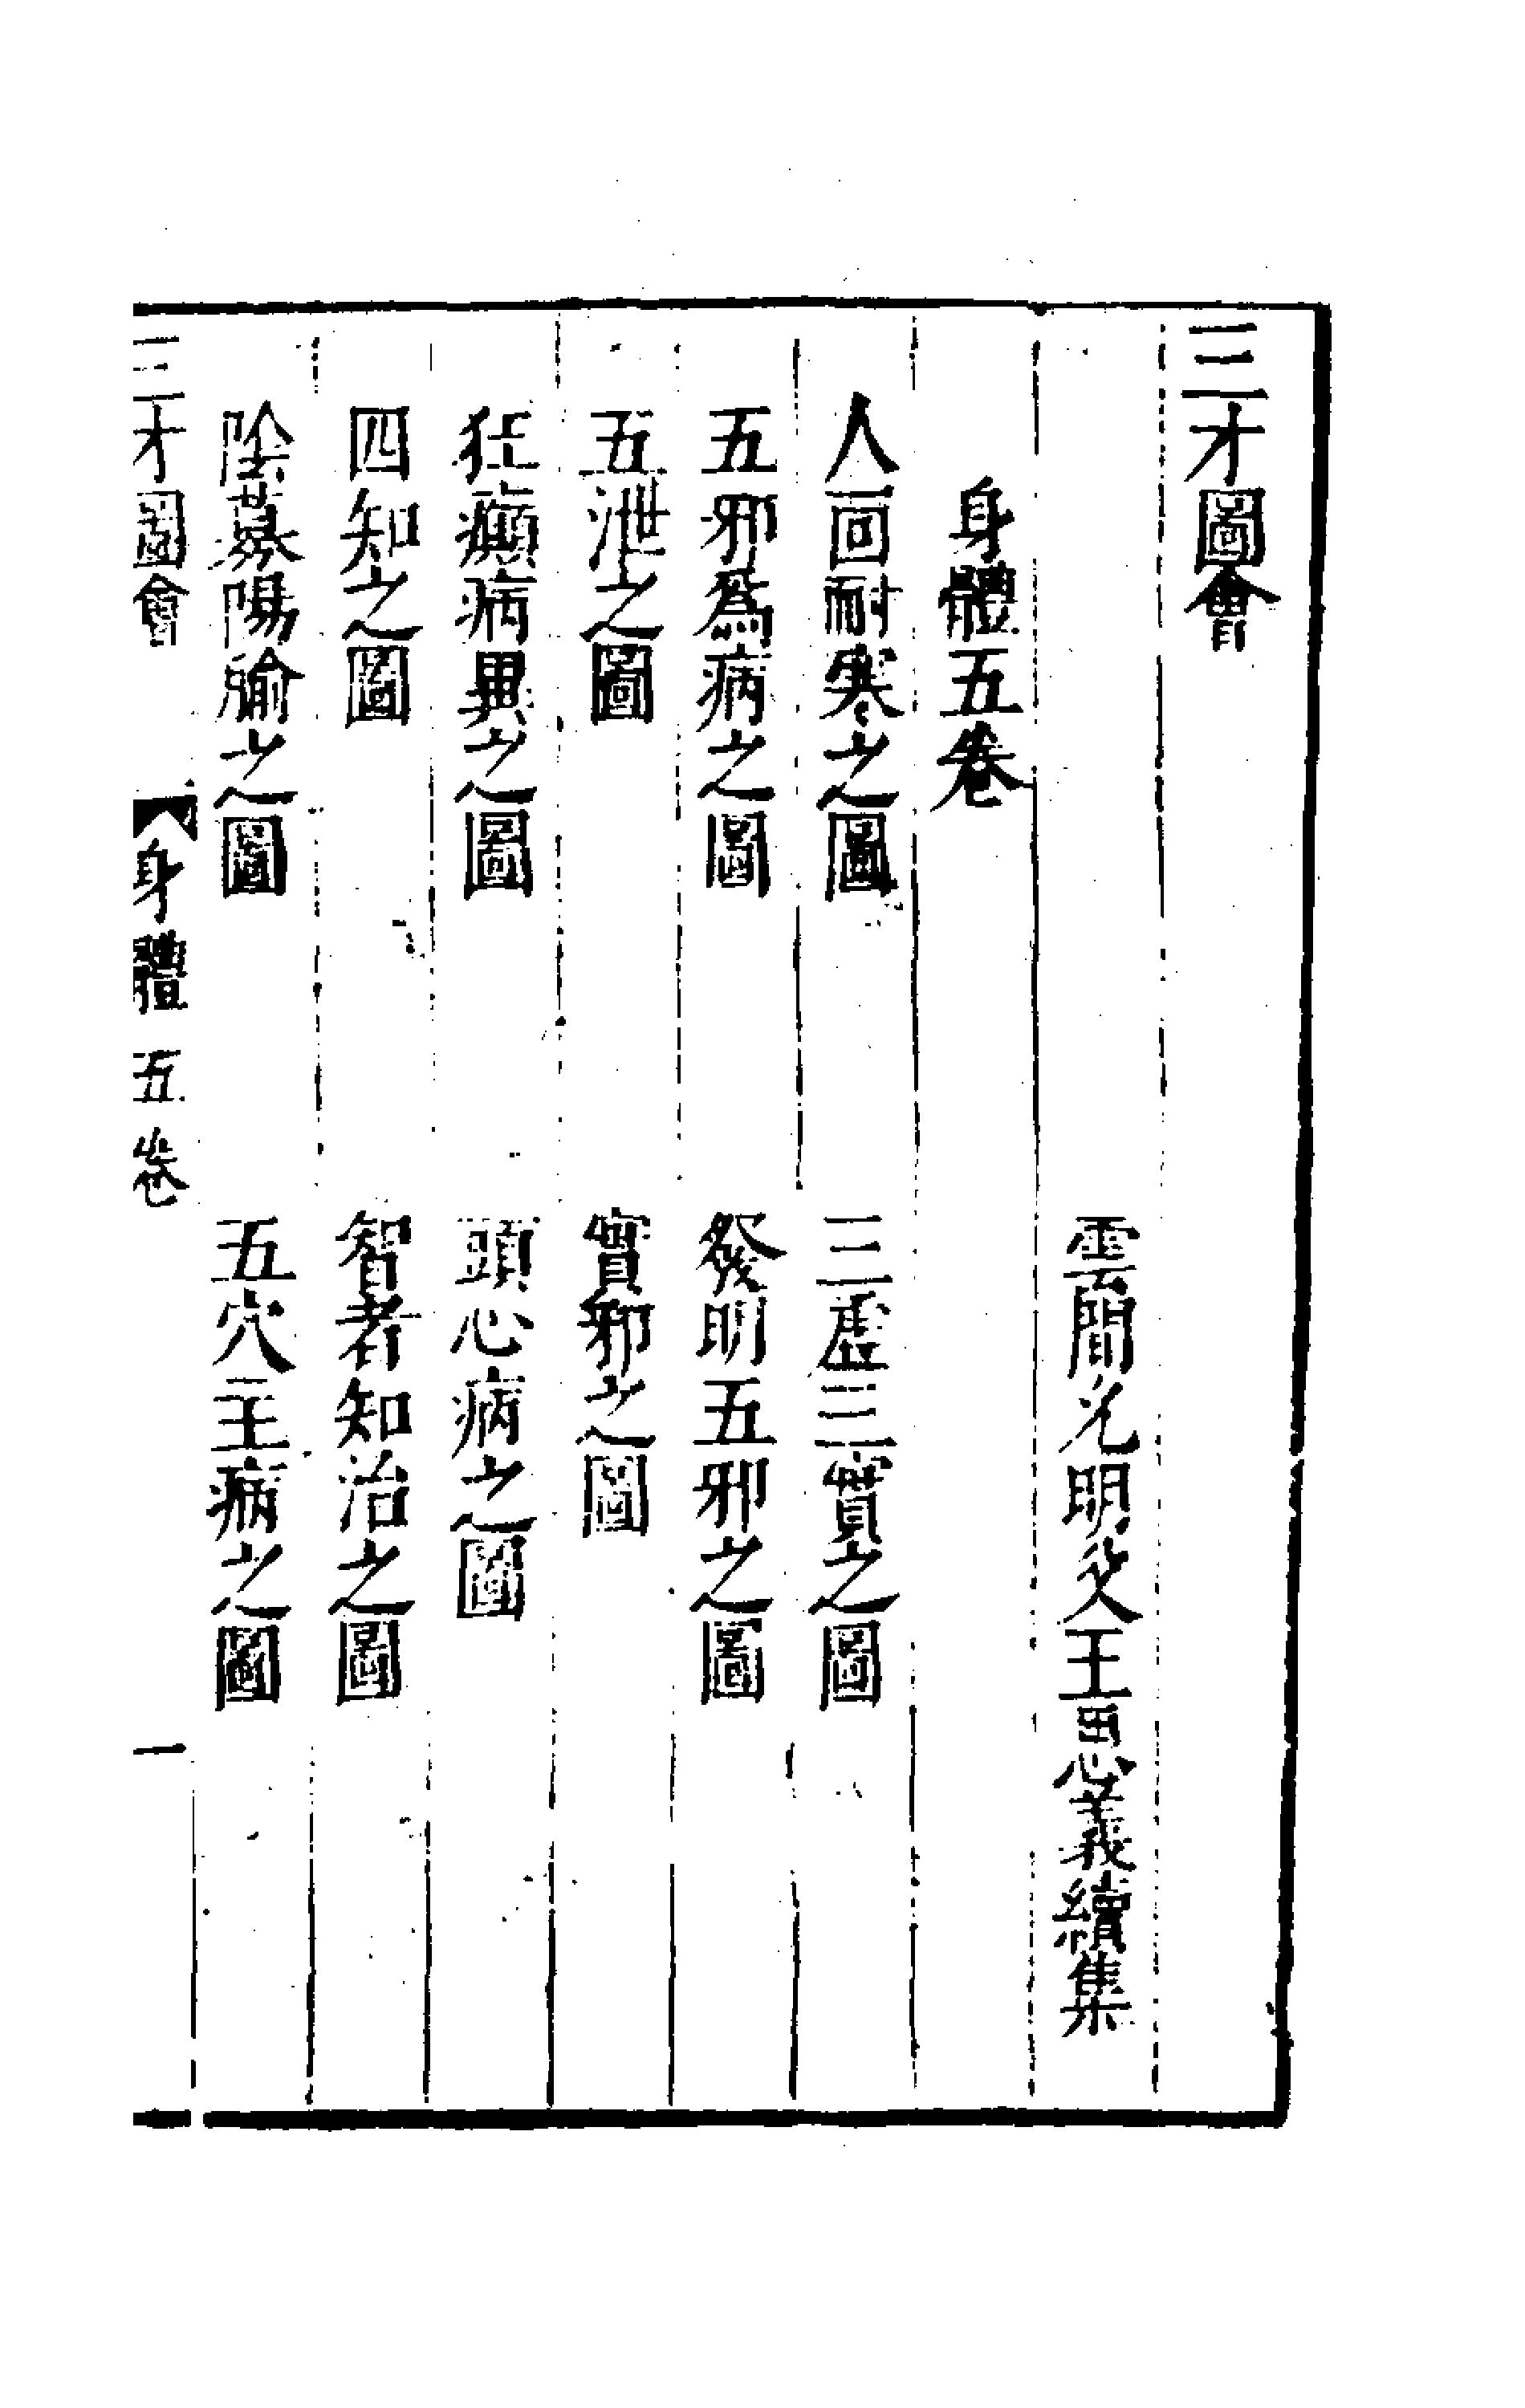 三才圖會
雲間允明父王思義續集
身體五卷
人面耐寒之圖　三虛三實之圖
五邪為病之圖　發明五邪之圖
五泄之圖　實邪之圖
狂癲病異之圖　頭心病之圖
四知之圖　智者知治之圖
陰募陽腧之圖　五穴主病之圖
三才圖會　身體五卷　一